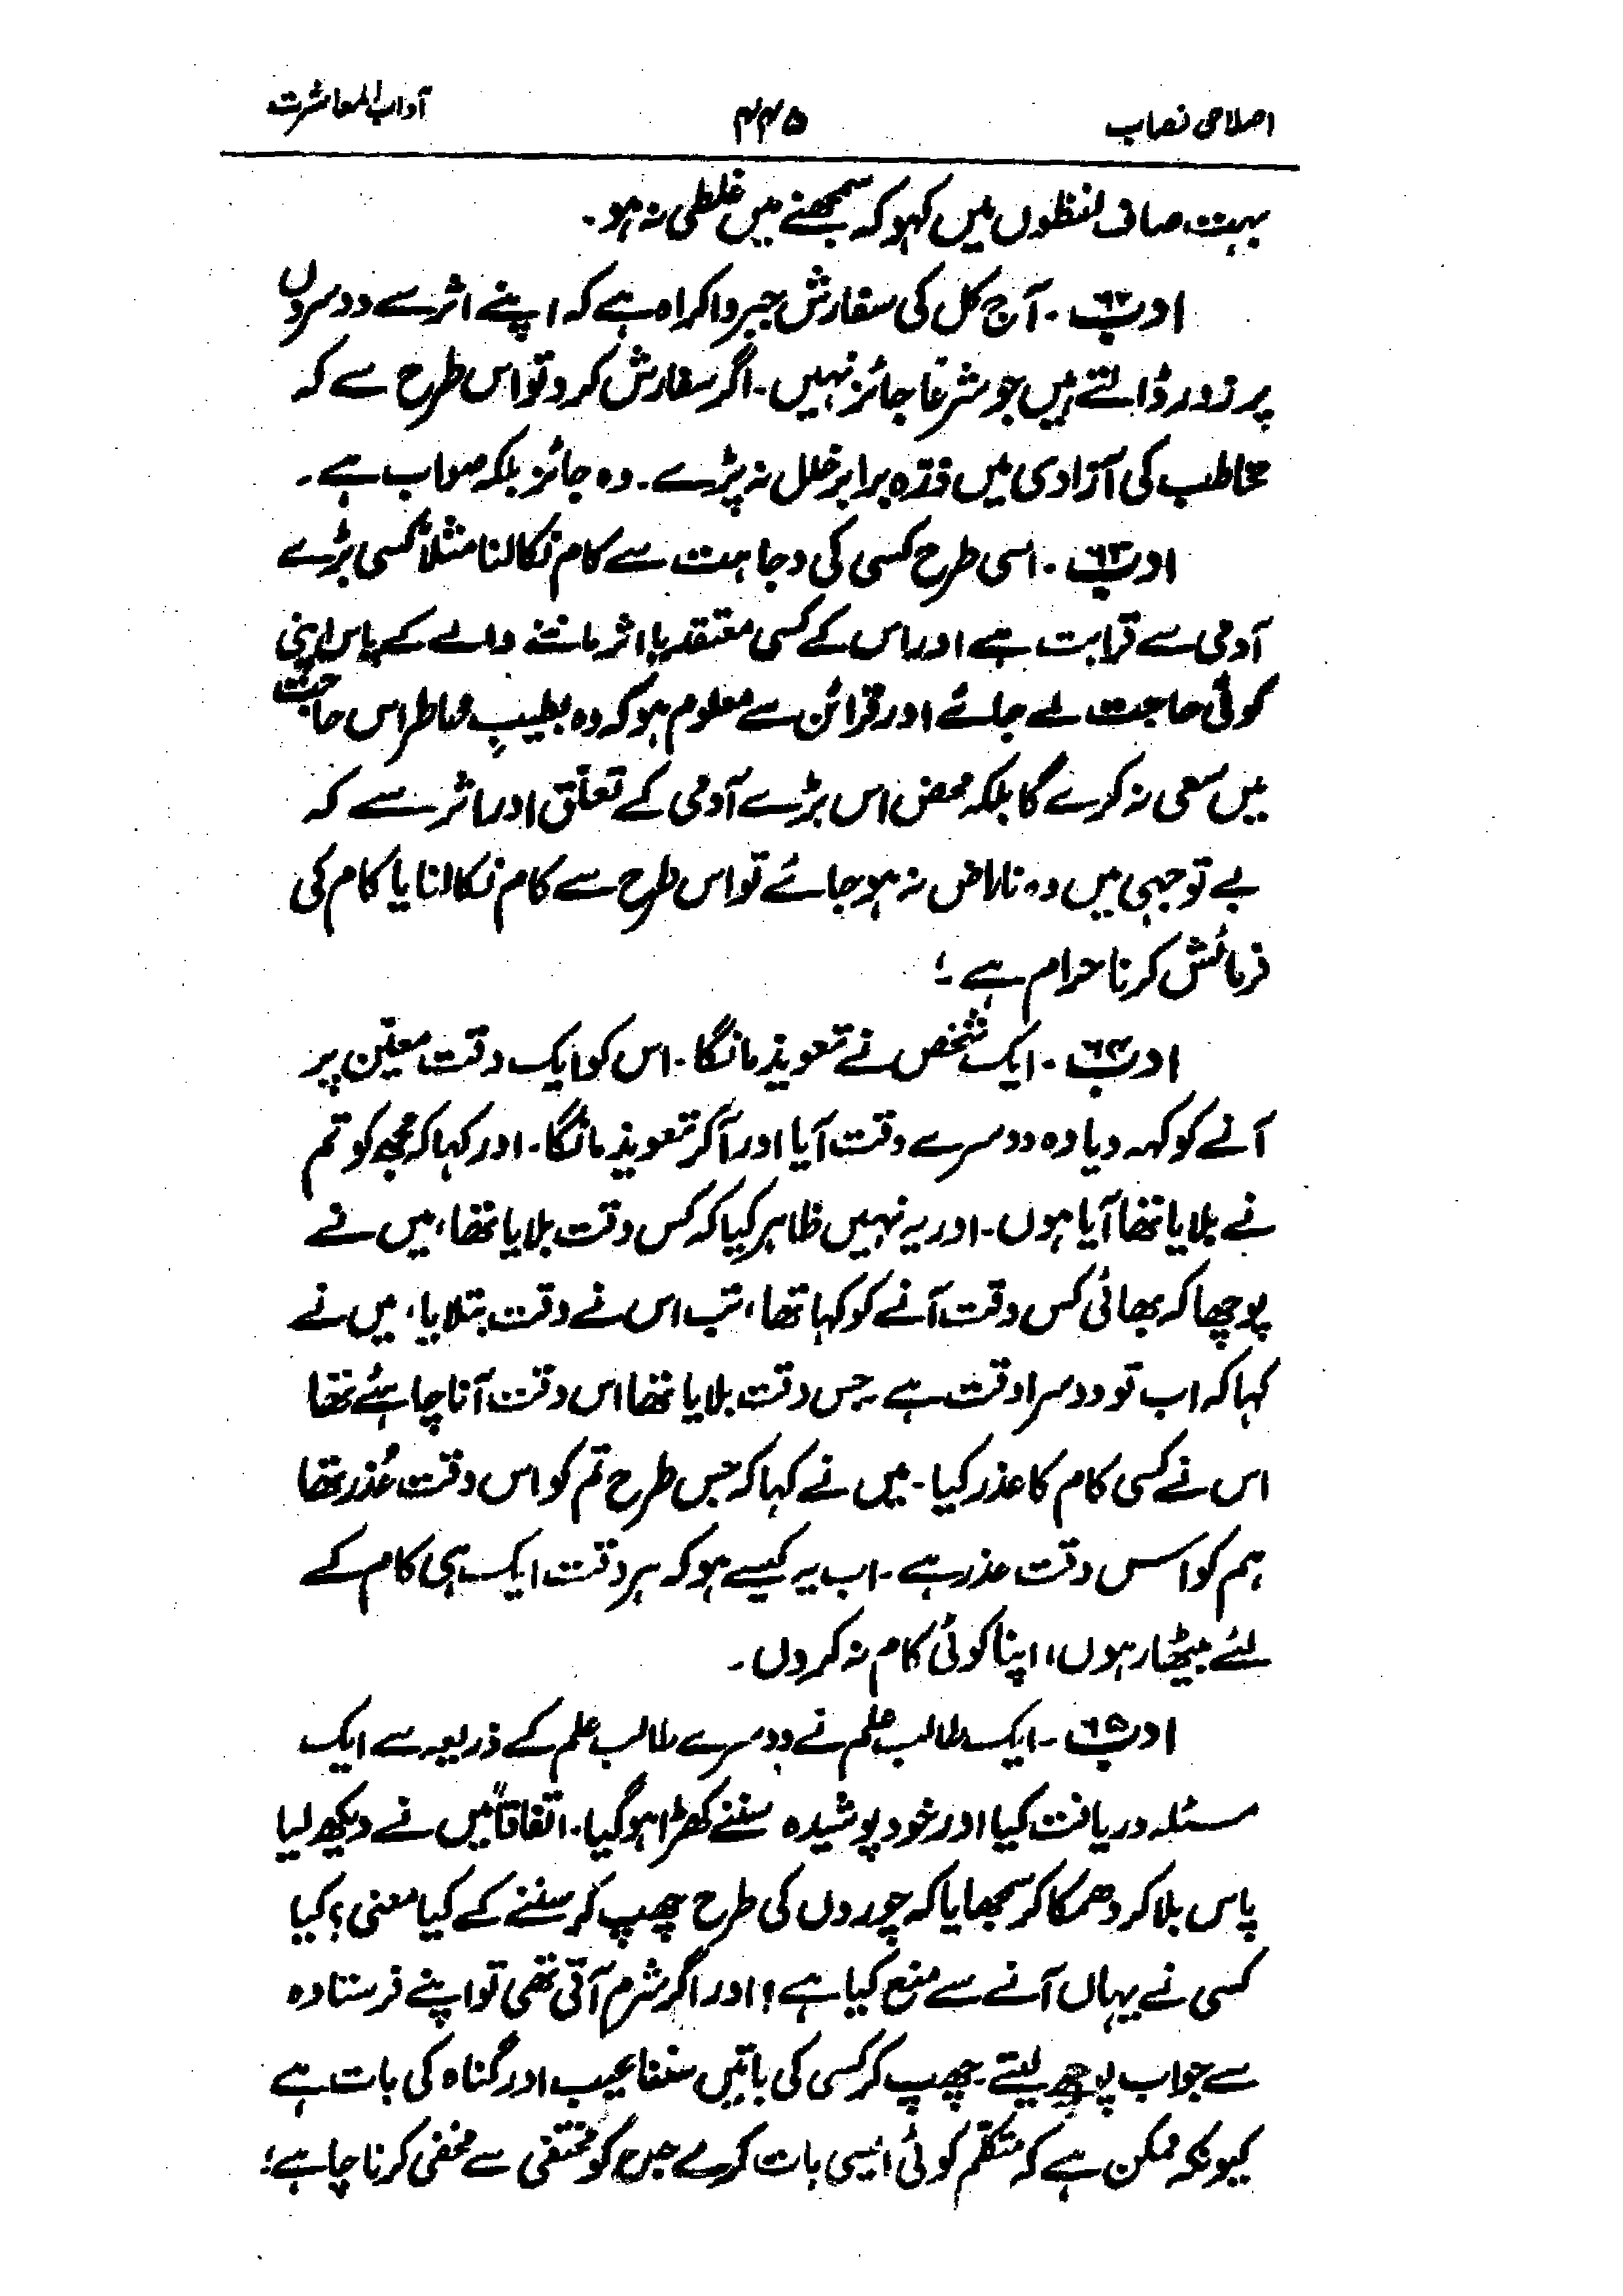 اصلاحی نصاب ۴۴۵ آداب المعاشرت
بہت صاف لفظوں میں کہو کہ سمجھنے میں غلطی نہ ہو۔
ادب ۶۲۔ آج کل کی سفارش جبر و اکراہ ہے کہ اپنے اثر سے دوسروں
پر زور ڈالتے ہیں جو شرعًا جائز نہیں۔ اگر سفارش کرو تو اس طرح سے کہ
مخاطب کی آزادی میں ذرّہ برابر خلل نہ پڑے۔ وہ جائز بلکہ صواب ہے۔
ادب ۶۳۔ اسی طرح کسی کی وجاہت سے کام نکالنا مثلاً کسی بڑے
آدمی سے قرابت ہے اور اس کے کسی معتقد یا اثر ماننے والے کے پاس اپنی
کوئی حاجت لے جائے اور قرائن سے معلوم ہو کہ وہ بطیبِ خاطر اس حاجت
میں سعی نہ کرے گا بلکہ محض اس بڑے آدمی کے تعلّق اور اثر سے کہ
بے توجہی میں وہ ناراض نہ ہو جائے تو اس طرح سے کام نکالنا یا کام کی
فرمائش کرنا حرام ہے؛
ادب ۶۴۔ ایک شخص نے تعویذ مانگا۔ اس کو ایک وقت معیّن پر
آنے کو کہہ دیا وہ دوسرے وقت آیا اور آکر تعویذ مانگا۔ اور کہا کہ مجھ کو تم
نے بلایا تھا آیا ہوں۔ اور یہ نہیں ظاہر کیا کہ کس وقت بلایا تھا، میں نے
پوچھا کہ بھائی کس وقت آنے کو کہا تھا، تب اس نے وقت بتلایا، میں نے
کہا کہ اب تو دوسرا وقت ہے۔ جس وقت بلایا تھا اس وقت آنا چاہئے تھا
اس نے کسی کام کا عذر کیا۔ میں نے کہا کہ جس طرح تم کو اس وقت عُذر تھا
ہم کو اس وقت عذر ہے۔ اب یہ کیسے ہو کہ ہر وقت ایک ہی کام کے
لئے بیٹھا رہوں، اپنا کوئی کام نہ کروں۔
ادب ۶۵۔ ایک طالب علم نے دوسرے طالب علم کے ذریعہ سے ایک
مسئلہ دریافت کیا اور خود پوشیدہ سننے کھڑا ہو گیا۔ اتفاقاً میں نے دیکھ لیا
پاس بلا کر دھمکا کر سمجھایا کہ چوروں کی طرح چھپ کر سننے کے کیا معنی؟ کیا
کسی نے یہاں آنے سے منع کیا ہے؟ اور اگر شرم آتی تھی تو اپنے فرستادہ
سے جواب پوچھ لیتے۔ چھپ کر کسی کی باتیں سننا عیب اور گناہ کی بات ہے
کیونکہ ممکن ہے کہ متکلّم کوئی ایسی بات کرے جس کو مختفی سے مخفی کرنا چاہے؛